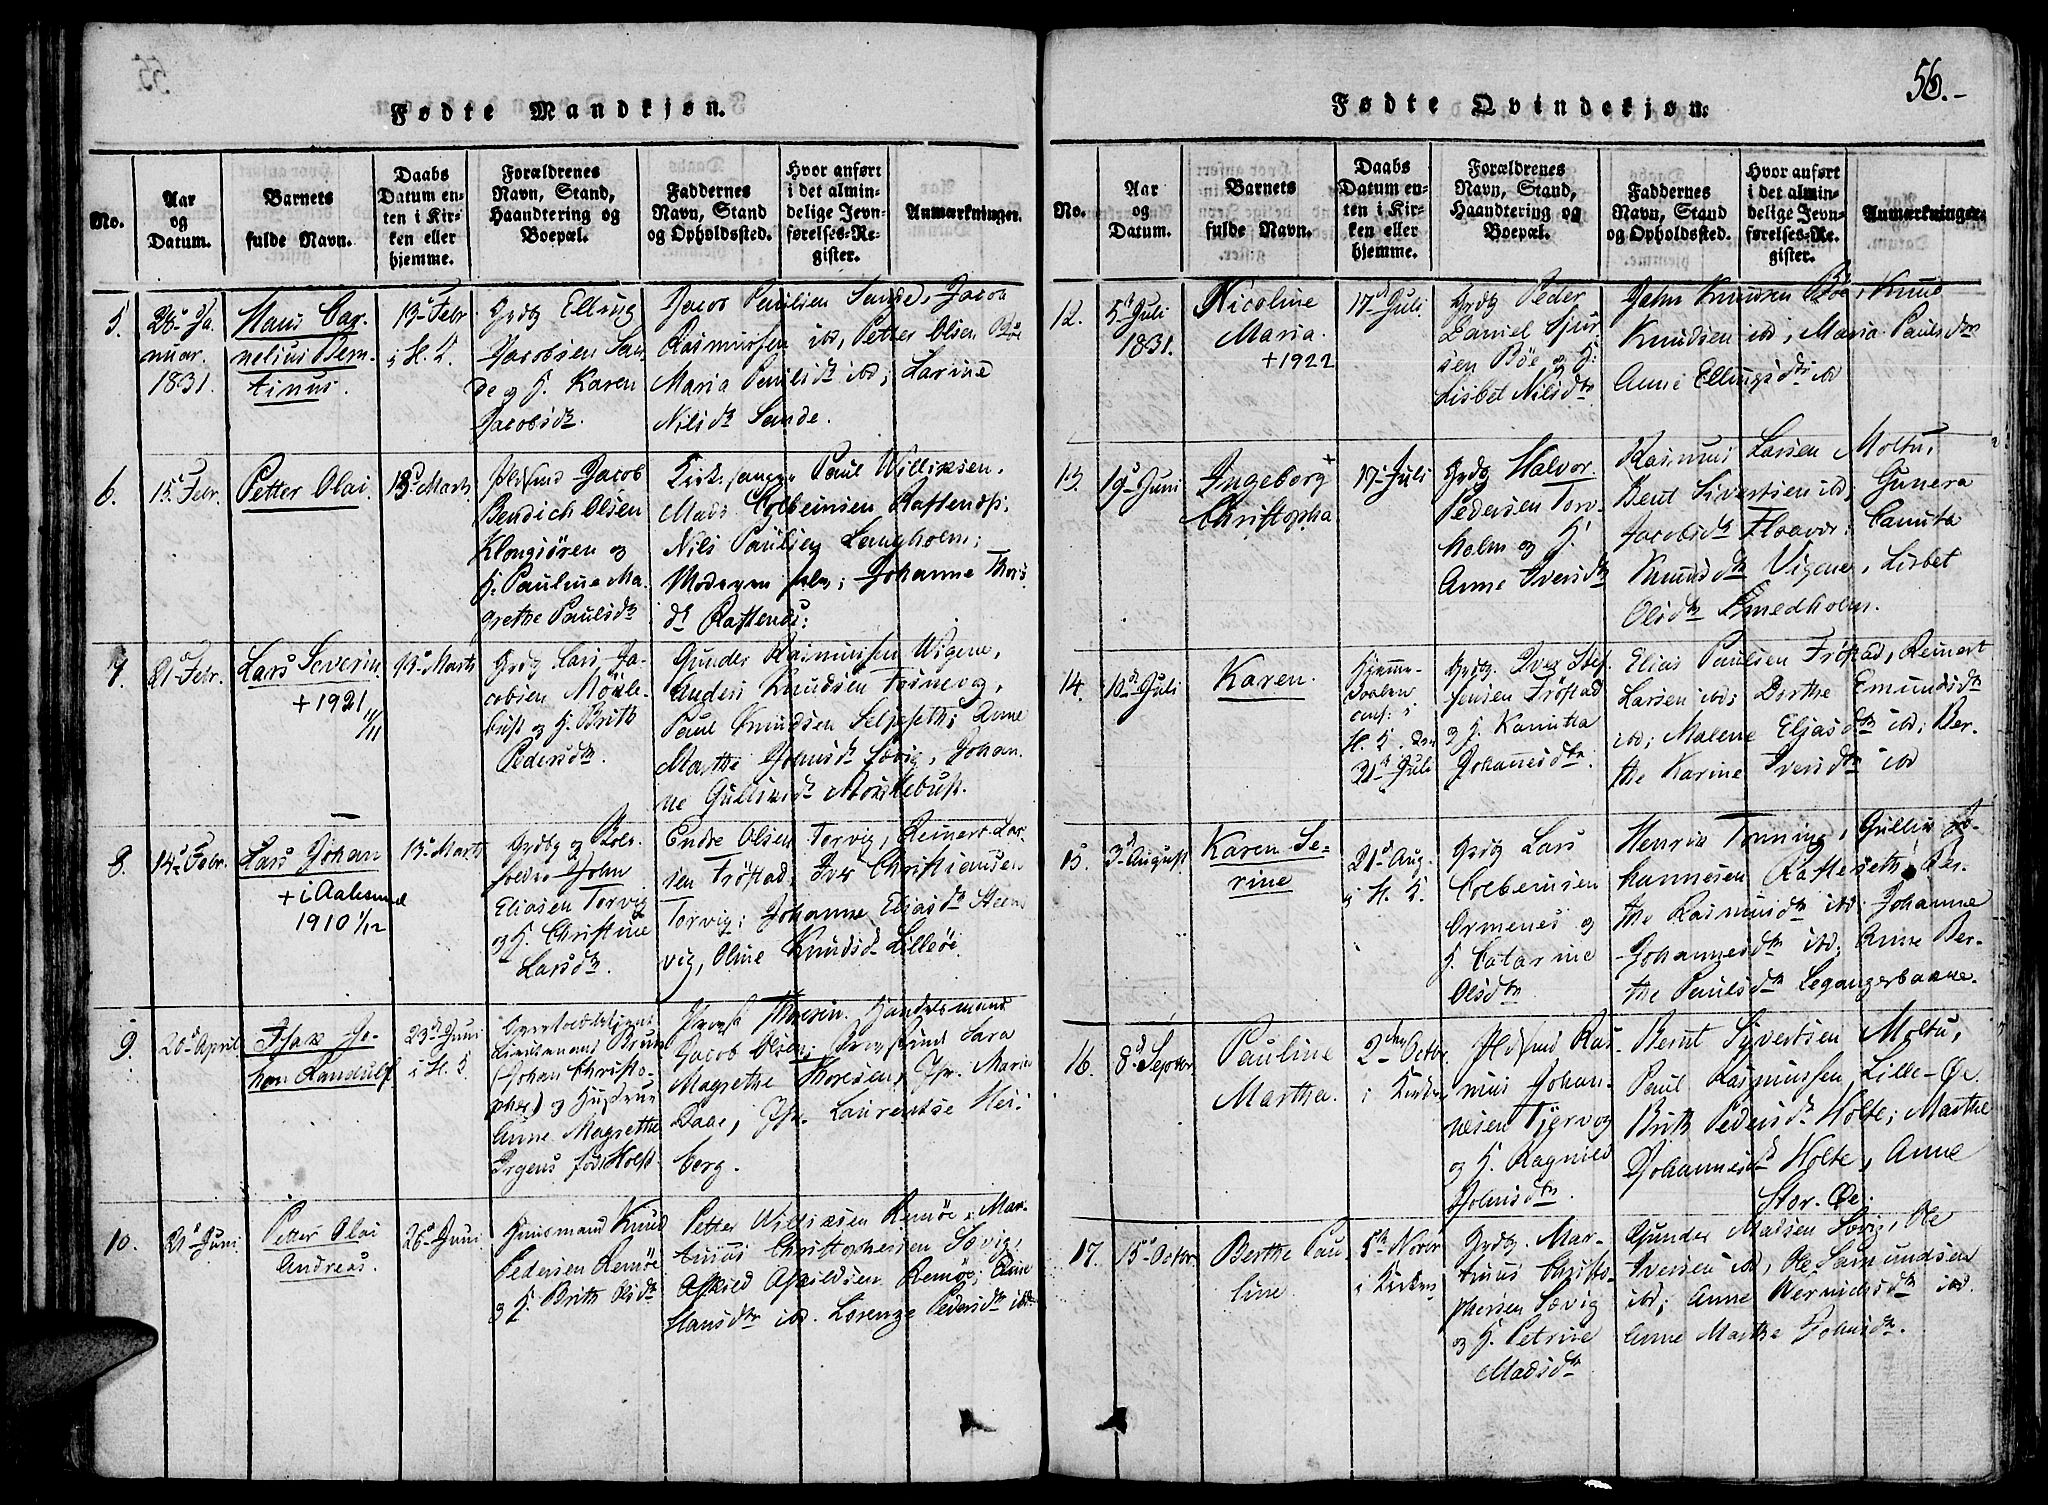 Fødte Mandkjøn.
No.
Aar
og
Datum.
Barnets
fulde Navn.
Daabs
Datum en-
ten i Kir-
ken eller
hjemme.
Forældrenes
Navn, Stand,
Haandtering og
Boepæl.
Faddernes
Navn, Stand
og Opholdssted.
Hvor anført
i det almin-
delige Jevn-
førelses-Re-
gister.
Anmærkninger.
5.
28 Ja-
nuar.
1831.
Hans Cor-
nelius Bern-
tinus.
13 Febr
i H. K.
Grdbg Elling
Jacobsen San-
de og H. Karen
Jacobsdr.
Jacob Paulsen Sande, Jacob
Rasmussen ibd, Petter Olsen Bøe
Maria Paulsdr ibd; Larine
Nilsdr Sande.
6.
15 Febr.
Petter Olai.
13 Marts
Plidsmd Jacob
Bendich Olsen
Klongsøren og
H. Pauline Ma-
grethe Paulsdr
Kirkesanger Paul Willixsen,
Mads Colbeinsen Raftends;
Nils Paulsen Langholm;
Moderen selv; Johanne Thors
dr Raftends:
7.
21 Febr.
Lars Severin
+ 1921 11/11
13 Marts
Grdbg Lars Ja-
cobsen Møkle-
bust og H. Brith
Pedersdr.
Gunder Rasmussen Wigene,
Anders Knudsen Tornevig,
Paul Knudsen Selseseth; Anne
Marthe Johnsdr Søvig, Johan-
ne Gullixsdr Møklebust.
8.
14 Febr.
Lars Johan
+ i Aalesund
1910 1/12
13 Marts
Grdbg og
John
Eliasen Torvig
og H. Christine
Larsdr.
Endre Olsen Torvig, Reinert Lar-
sen Frøstad, Iver Christiansen
Torvig; Johanne Eliasdr Steens
vig, Oline Knudsd. Lilleøe.
9.
20 April
Isax Jo-
han Randulf
23 Juni
i H. K.
Lieutenant Bruun
(Johan Christo-
pher) og Hustrue
Anne Magrethe
Irgens fød Holst
Provst Thoresen. Handelsmand
Jacob Olsen; Provstinde Sara
Magrethe Thoresen, Jfr. Maria
Daae, Jfr. Laurentse Hei-
berg.
10.
21 Juni
Petter Olai
Andreas.
26 Juni.
Huusmand Knud
Pedersen Remøe
og H. Brith Olsdr
Petter Willixsen Remøe, Mar-
tinus Christophersen Søvig,
Askild Askildsen Remøe; Anne
Hansdr ibd. Lorenze Pedersdr ibd.
56.-
Fødte Qvindekjøn.
No.
Aar
og
Datum.
Barnets
fulde Navn.
Daabs
Datum en-
ten i Kir-
ken eller
hjemme.
Forældrenes
Navn, Stand,
Haandtering og
Boepæl.
Faddernes
Navn, Stand
og Opholdssted.
Hvor anført
i det almin-
delige Jevn-
førelses-Re-
gister.
Anmærkninger.
12.
5 Juli
1831.
Nicoline
Maria.
+ 1922
17 Juli
Grdbg Peder
Daniel Sjur-
sen Bøe og H:
Lisbet Nilsdr.
John Knudsen Bøe, Knud
Knudsen ibd; Maria Paulsdr
Anne Ellingsdr ibd
13.
19 Juni
Ingeborg +
Christopha
17 Juli
Grdbg Halvor
Pedersen Torv-
holm og H.
Anne Iversdr
Rasmus Larsen Moltu,
Bent Sivertsen ibd, Gunera
Jacobsdr Flaavær: Canuta
Knudsdr Vigene, Lisbet
Olsdr Smedholm.
14.
10 Juli
Karen.
Hjemme-
døbt
conf. i
H. K. den
31 Juli
Grdbg. Iver Stef-
fensen Frøstad
og H. Kanutha
Johannesdr.
Elias Paulsen Frøstad, Reinert
Larsen ibd; Berthe Emundsdr
ibd; Malene Eliasdr ibd; Ber-
the Karine Iversdr ibd
15.
3 August.
Karen Se-
rine
21 Aug.
i H. K.
Grdbg Lars
Colbeinsen
Ormenes og
H. Catarine
Olsdr
Henrik Tonning, Gullix Jo-
hannesen Raftesæth; Ber-
the Rasmusdr ibd; Johanne
Johannesdr ibd; Anne Ber-
the Paulsdr Legangerbakke.
16.
8 Septbr
Pauline
Martha.
2den Octbr
i Kirken
Plidsmd Ras-
mus Johan-
nesen Tjørvog
og H. Ragnild
Johnsdr.
Bernt Syvertsen Moltu,
Paul Rasmussen Lille-Øe.
Brith Pedersdr Holte; Marthe
Johannesd Holte, Anne
Stor-Øe.
17.
15 Octbr
Berthe Pau-
line
5te Novbr
i Kirken
Grdbg. Mar-
tinus Christo-
phersen Søvig
og H. Petrine
Madsdr
Gunder Madsen Søvig, Ole
Iversen ibd, Ole Samundsen
ibd; Anne Wernudsdr ibd.
Anne Marthe Johnsdr.